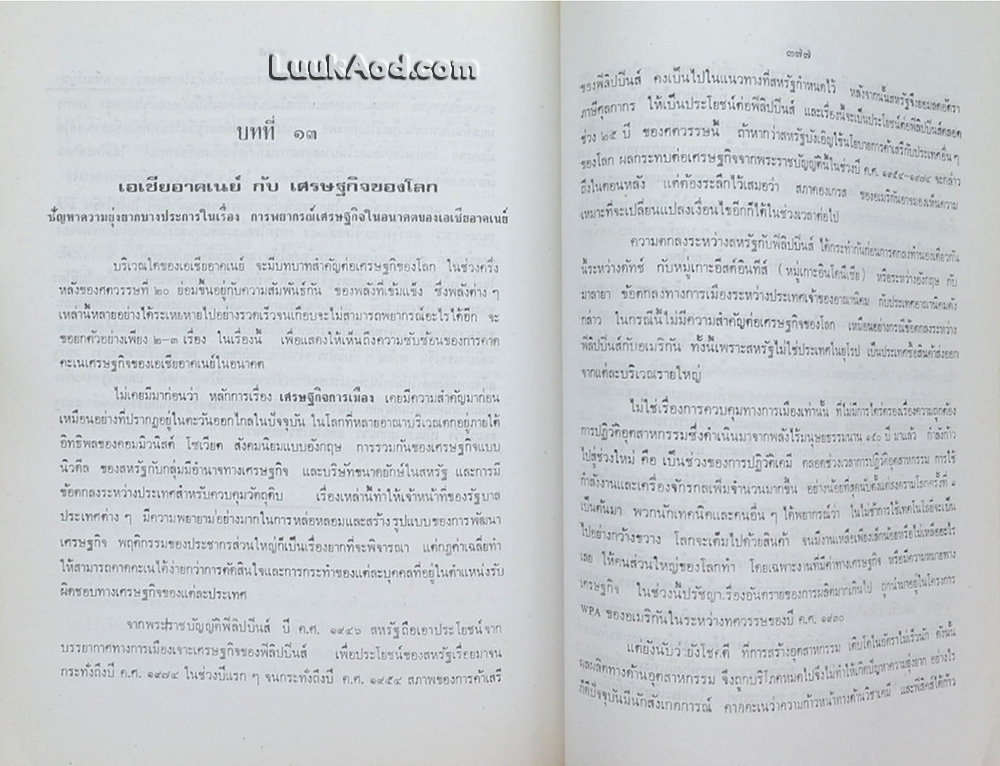 LuukAod.com
บทที่ ๑๓
เอเซียอาคเนย์ กับ เศรษฐกิจของโลก
ปัญหาความยุ่งยากบางประการในเรื่อง การพยากรณ์เศรษฐกิจในอนาคตของเอเซียอาคเนย์
บริเวณใดของเอเซียอาคเนย์ จะมีบทบาทสำคัญต่อเศรษฐกิจของโลก ในช่วงครึ่ง
หลังของศตวรรษที่ ๒๐ ย่อมขึ้นอยู่กับความสัมพันธ์กัน ของพลังที่เข้มแข็ง ซึ่งพลังต่าง ๆ
เหล่านี้หลายอย่างได้ระเหยหายไปอย่างรวดเร็วจนเกือบจะไม่สามารถพยากรณ์อะไรได้อีก จะ
ขอยกตัวอย่างเพียง ๒–๓ เรื่อง ในเรื่องนี้ เพื่อแสดงให้เห็นถึงความซับซ้อนของการคาด
คะเนเศรษฐกิจของเอเซียอาคเนย์ในอนาคต
ไม่เคยมีมาก่อนว่า หลักการเรื่อง เศรษฐกิจการเมือง เคยมีความสำคัญมาก่อน
เหมือนอย่างที่ปรากฏอยู่ในตะวันออกไกลในปัจจุบัน ในโลกที่หลายอาณาบริเวณตกอยู่ภายใต้
อิทธิพลของคอมมิวนิสต์ โซเวียต สังคมนิยมแบบอังกฤษ การรวมกันของเศรษฐกิจแบบ
นิวดีล ของสหรัฐกับกลุ่มมีอำนาจทางเศรษฐกิจ และบริษัทขนาดยักษ์ในสหรัฐ และการมี
ข้อตกลงระหว่างประเทศสำหรับควบคุมวัตถุดิบ เรื่องเหล่านี้ทำให้เจ้าหน้าที่ของรัฐบาล
ประเทศต่าง ๆ มีความพยายามอย่างมากในการหล่อหลอมและสร้างรูปแบบของการพัฒนา
เศรษฐกิจ พฤติกรรมของประชากรส่วนใหญ่ก็เป็นเรื่องยากที่จะพิจารณา แต่กฎค่าเฉลี่ยทำ
ให้สามารถคาดคะเนได้ง่ายกว่าการตัดสินใจและการกระทำของแต่ละบุคคลที่อยู่ในตำแหน่งรับ
ผิดชอบทางเศรษฐกิจของแต่ละประเทศ
จากพระราชบัญญัติฟิลิปปินส์ ปี ค.ศ. ๑๙๔๖ สหรัฐถือเอาประโยชน์จาก
บรรยากาศทางการเมืองเจาะเศรษฐกิจของฟิลิปปินส์ เพื่อประโยชน์ของสหรัฐเรื่อยมาจน
กระทั่งถึงปี ค.ศ. ๑๙๗๔ ในช่วงปีแรก ๆ จนกระทั่งถึงปี ค.ศ. ๑๙๕๔ สภาพของการค้าเสรี
๓๗๗
ของฟิลิปปินส์ คงเป็นไปในแนวทางที่สหรัฐกำหนดไว้ หลังจากนั้นสหรัฐจึงยอมลดอัตรา
ภาษีศุลกากร ให้เป็นประโยชน์ต่อฟิลิปปินส์ และเรื่องนี้จะเป็นประโยชน์ต่อฟิลิปปินส์ตลอด
ช่วง ๒๕ ปี ของศตวรรษนี้ ถ้าหากว่าสหรัฐบังเอิญใช้นโยบายการค้าเสรีกับประเทศอื่น ๆ
ของโลก ผลกระทบต่อเศรษฐกิจจากพระราชบัญญัตินี้ในช่วงปี ค.ศ. ๑๙๕๔–๑๙๗๔ จะกล่าว
ถึงในตอนหลัง แต่ต้องระลึกไว้เสมอว่า สภาคองเกรส ของอเมริกันอาจมองเห็นความ
เหมาะที่จะเปลี่ยนแปลงเงื่อนไขอีกก็ได้ในช่วงเวลาต่อไป
ความตกลงระหว่างสหรัฐกับฟิลิปปินส์ ได้กระทำกันก่อนการตกลงทำนองเดียวกัน
นี้ระหว่างดัทช์ กับหมู่เกาะอีสต์อินดีส์ (หมู่เกาะอินโดนีเซีย) หรือระหว่างอังกฤษ กับ
มาลายา ข้อตกลงทางการเมืองระหว่างประเทศเจ้าของอาณานิคม กับประเทศอาณานิคมดัง
กล่าว ในกรณีนี้ไม่มีความสำคัญต่อเศรษฐกิจของโลก เหมือนอย่างกรณีข้อตกลงระหว่าง
ฟิลิปปินส์กับอเมริกัน ทั้งนี้เพราะสหรัฐไม่ใช่ประเทศในยุโรป เป็นประเทศซื้อสินค้าส่งออก
จากแต่ละบริเวณรายใหญ่
ไม่ใช่เรื่องการควบคุมทางการเมืองเท่านั้น ที่ไม่มีการไตร่ตรองเรื่องความถูกต้อง
การปฏิวัติอุตสาหกรรมซึ่งดำเนินมาจากพลังไร้มนุษยธรรมนาน ๑๙๐ ปี มาแล้ว กำลังก้าว
ไปสู่ช่วงใหม่ คือ เป็นช่วงของการปฏิวัติเคมี ตลอดช่วงเวลาการปฏิวัติอุตสาหกรรม การใช้
กำลังงานและเครื่องจักรกลเพิ่มจำนวนมากขึ้น อย่างน้อยที่สุดนับตั้งแต่สงครามโลกครั้งที่ ๑
เป็นต้นมา พวกนักเทคนิคและคนอื่น ๆ ได้พยากรณ์ว่า ในไม่ช้าการใช้เทคโนโลยีจะเป็น
ไปอย่างกว้างขวาง โลกจะเต็มไปด้วยสินค้า จนมีงานเหลือเพียงเล็กน้อยหรือไม่เหลืออะไร
เลย ให้คนส่วนใหญ่ของโลกทำ โดยเฉพาะงานที่มีค่าทางเศรษฐกิจ หรือมีความหมายทาง
เศรษฐกิจ ในช่วงนี้ปรัชญาเรื่องอันตรายของการผลิตมากเกินไป ถูกนำมาอยู่ในโครงการ
WPA ของอเมริกันในระหว่างทศวรรษของปี ค.ศ. ๑๙๓๐
แต่ยังนับว่ายังโชคดี ที่การสร้างอุตสาหกรรม เติบโตในอัตราไม่เร็วนัก ดังนั้น
ผลผลิตทางด้านอุตสาหกรรม จึงถูกบริโภคหมดไปจึงไม่ทำให้เกิดปัญหาความยุ่งยาก อย่างไร
ก็ดีปัจจุบันมีนักสังเกตการณ์ คาดคะเนว่าความก้าวหน้าทางด้านวิชาเคมี และฟิสิกส์ได้ก้าว